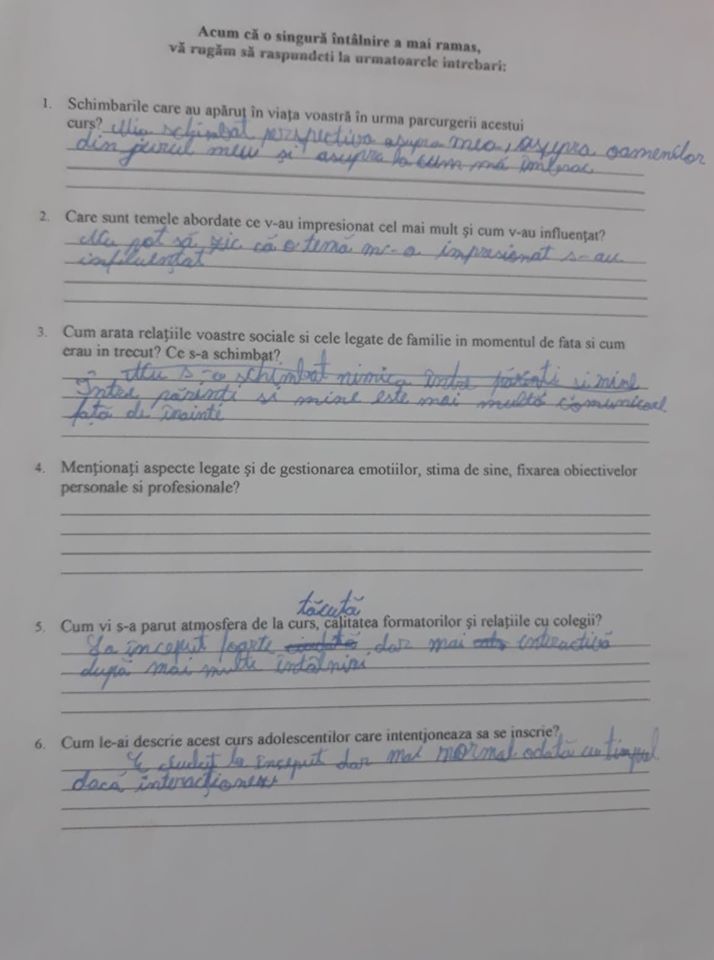 Acum că o singură întâlnire a mai ramas,
vă rugăm să raspundeti la urmatoarele intrebari:
1. Schimbarile care au apărut în viața voastră în urma parcurgerii acestui
curs? Mi-a schimbat perspectiva asupra mea, asupra oamenilor
din jurul meu și asupra la cum mă îmbrac
2. Care sunt temele abordate ce v-au impresionat cel mai mult şi cum v-au influenţat?
Nu pot să zic că o temă m-a impresionat s-au
influențat
3. Cum arata relaţiile voastre sociale si cele legate de familie in momentul de fata si cum
erau in trecut? Ce s-a schimbat?
Nu s-a schimbat nimica între părinți si mine
Între părinti si mine este mai multă comunicare
față de înainte
4. Menţionați aspecte legate şi de gestionarea emotiilor, stima de sine, fixarea obiectivelor
personale si profesionale?
tăcută
5. Cum vi s-a parut atmosfera de la curs, calitatea formatorilor şi relaţiile cu colegii?
La început foarte dar mai interactivă
după mai multe întâlniri
6. Cum le-ai descrie acest curs adolescentilor care intenţioneaza sa se inscrie?
E ciudat la început dar mai normal odată cu timpul
dacă interacționezi